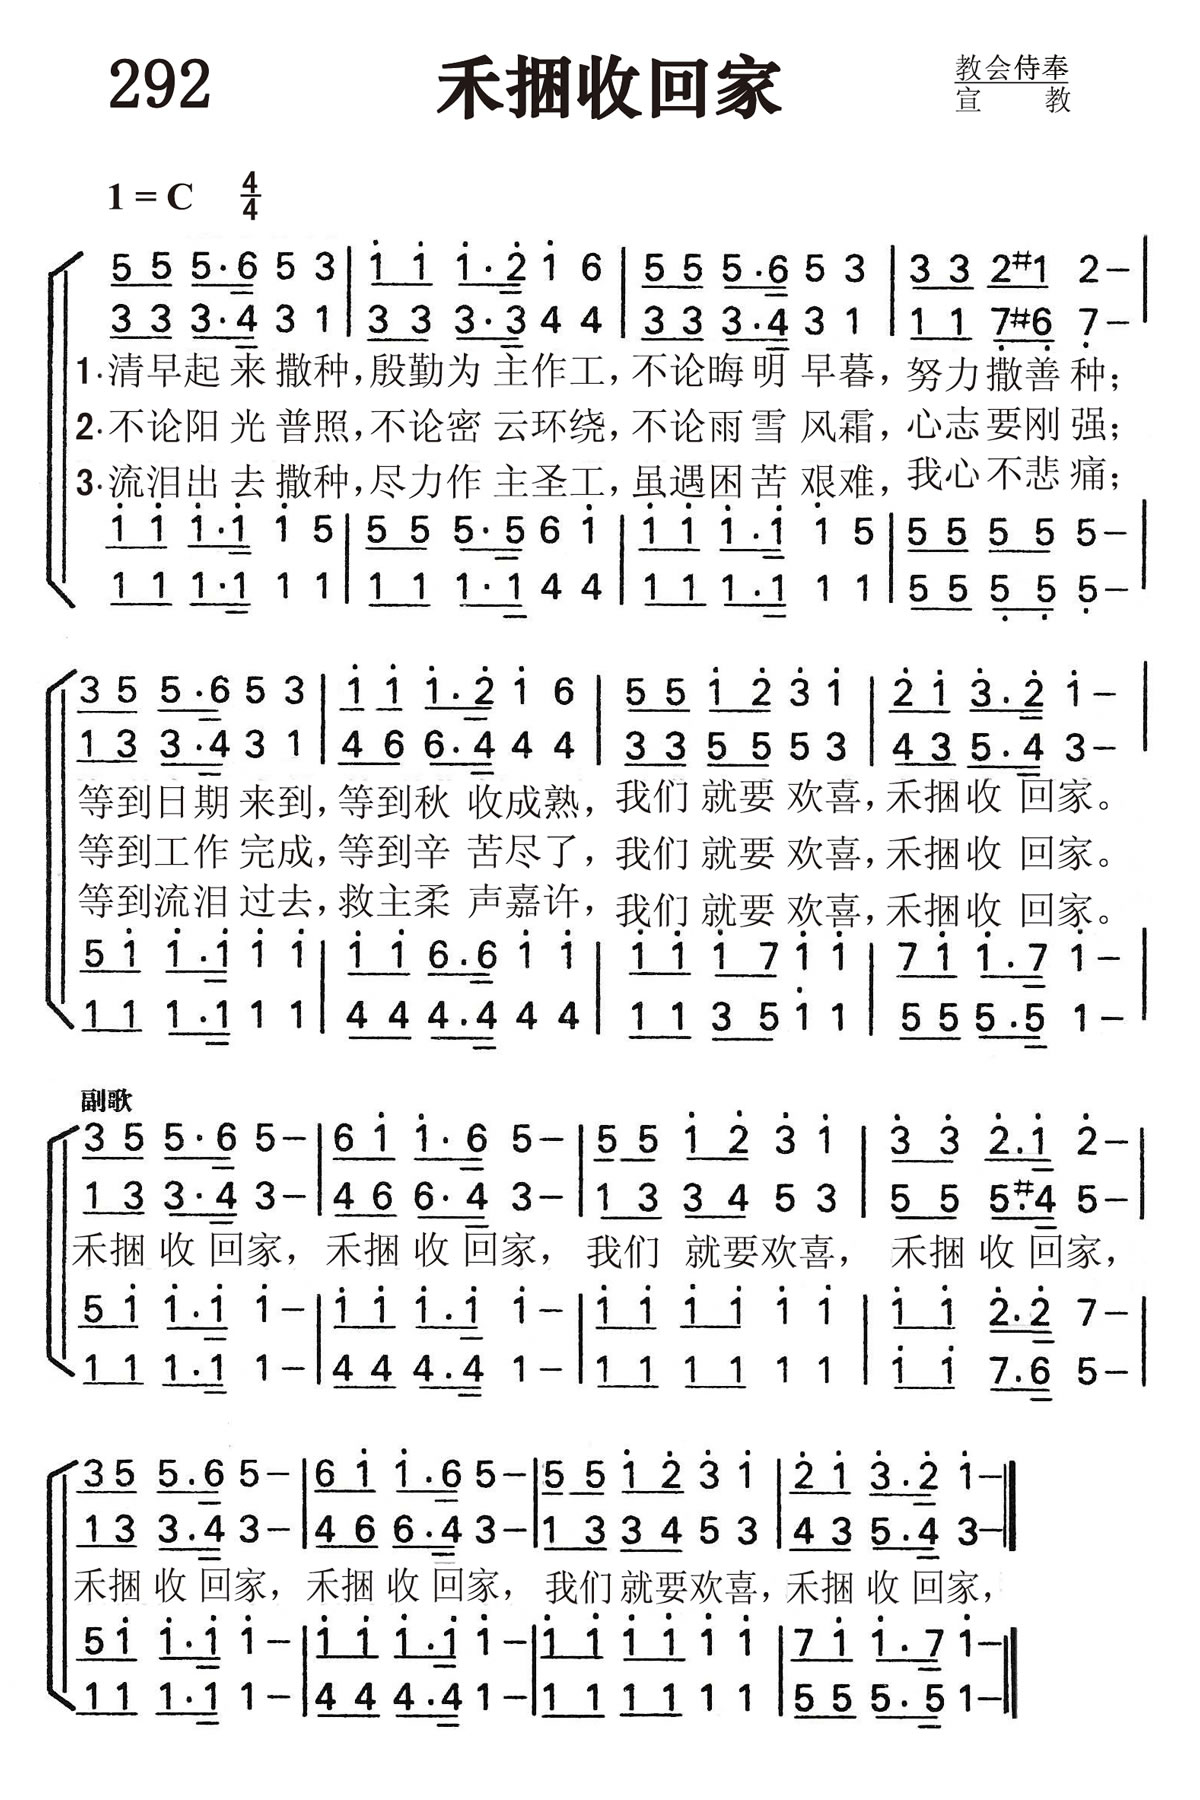 292
禾捆收回家
教会侍奉
宣 教
1 = C 4/4
5 5 5·6 5 3 | i i i·2̇ i 6 | 5 5 5·6 5 3 | 3 3 2#1 2 –
3 3 3·4 3 1 | 3 3 3·3 4 4 | 3 3 3·4 3 1 | 1 1 7̣#6̣ 7̣ –
1·清早起 来 撒种，殷勤为 主作工，不论晦 明 早暮，努力撒善种；
2·不论阳 光 普照，不论密 云环绕，不论雨 雪 风霜，心志要刚强；
3·流泪出 去 撒种，尽力作 主圣工，虽遇困 苦 艰难，我心不悲痛；
i i i·i i 5 | 5 5 5·5 6 i | i i i·i i 5 | 5 5 5 5 5 –
1 1 1·1 1 1 | 1 1 1·1 4 4 | 1 1 1·1 1 1 | 5 5 5̣ 5̣ 5̣ –
3 5 5·6 5 3 | i i i·2̇ i 6 | 5 5 i 2̇ 3̇ i | 2̇ i 3̇·2̇ i –
1 3 3·4 3 1 | 4 6 6·4 4 4 | 3 3 5 5 5 3 | 4 3 5·4 3 –
等到日期 来到，等到秋 收成熟，我们 就要 欢喜，禾捆收 回家。
等到工作 完成，等到辛 苦尽了，我们 就要 欢喜，禾捆收 回家。
等到流泪 过去，救主柔 声嘉许，我们 就要 欢喜，禾捆收 回家。
5 i i·i i i | i i 6·6 i i | i i i 7 i i | 7 i i·7 i –
1 1 1·1 1 1 | 4 4 4·4 4 4 | 1 1 3 5 i 1 | 5 5 5·5 1 –
副歌
3 5 5·6 5 – | 6 i i·6 5 – | 5 5 i 2̇ 3̇ i | 3̇ 3̇ 2̇·i 2̇ –
1 3 3·4 3 – | 4 6 6·4 3 – | 1 3 3 4 5 3 | 5 5 5·#4 5 –
禾捆 收 回家， 禾捆 收 回家， 我们 就要欢喜， 禾捆 收 回家，
5 i i·i i – | i i i·i i – | i i i i i i | i i 2̇·2̇ 7 –
1 1 1·1 1 – | 4 4 4·4 1 – | 1 1 1 1 1 1 | i i 7·6 5 –
3 5 5·6 5 – | 6 i i·6 5 – | 5 5 i 2̇ 3̇ i | 2̇ i 3̇·2̇ i –
1 3 3·4 3 – | 4 6 6·4 3 – | 1 3 3 4 5 3 | 4 3 5·4 3 –
禾捆 收 回家， 禾捆 收 回家， 我们就要欢喜，禾捆 收 回家，
5 i i·i i – | i i i·i i – | i i i i i i | 7 i i·7 i –
1 1 1·1 1 – | 4 4 4·4 1 – | 1 1 1 1 1 1 | 5 5 5·5 1 –